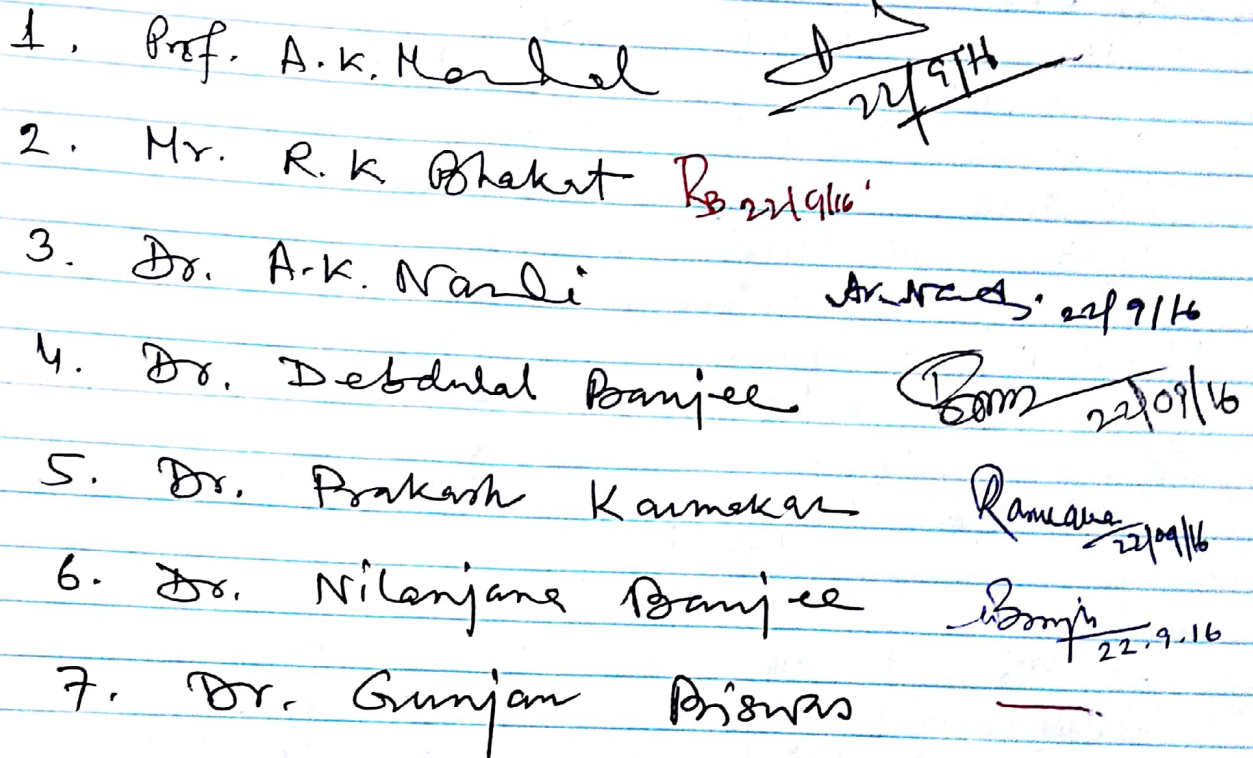 1. Prof. A.K. Mondal 22/9/16
2. Mr. R.K Bhakat RB 22/9/16
3. Dr. A.K. Nandi 22/9/16
4. Dr. Debdulal Banjee 22/09/16
5. Dr. Prakash Karmakar 22/09/16
6. Dr. Nilanjana Banjee 22.9.16
7. Dr. Gunjan Biswas —